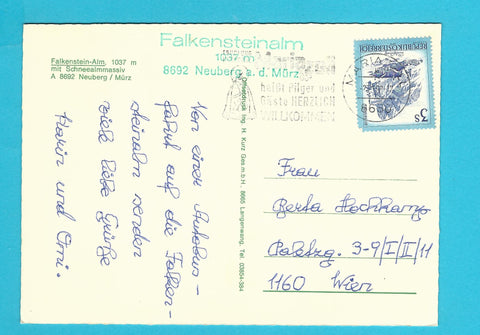 Falkenstein-Alm, 1037 m
mit Schneealmmassiv
A 8692 Neuberg / Mürz
Falkensteinalm
1037 m
8692 Neuberg a. d. Mürz
heißt Pilger und
Gäste HERZLICH
WILLKOMMEN
MARIA
8630
REPUBLIK ÖSTERREICH
3 S
Von einer Autobus-
fahrt auf die Falken-
steinalm senden
viele liebe Grüße
und Omi.
Ing. H. Kurz Ges.m.b.H., 8665 Langenwang, Tel. 03854-384
Frau
Berta
3-9/I/II/11
1160 Wien